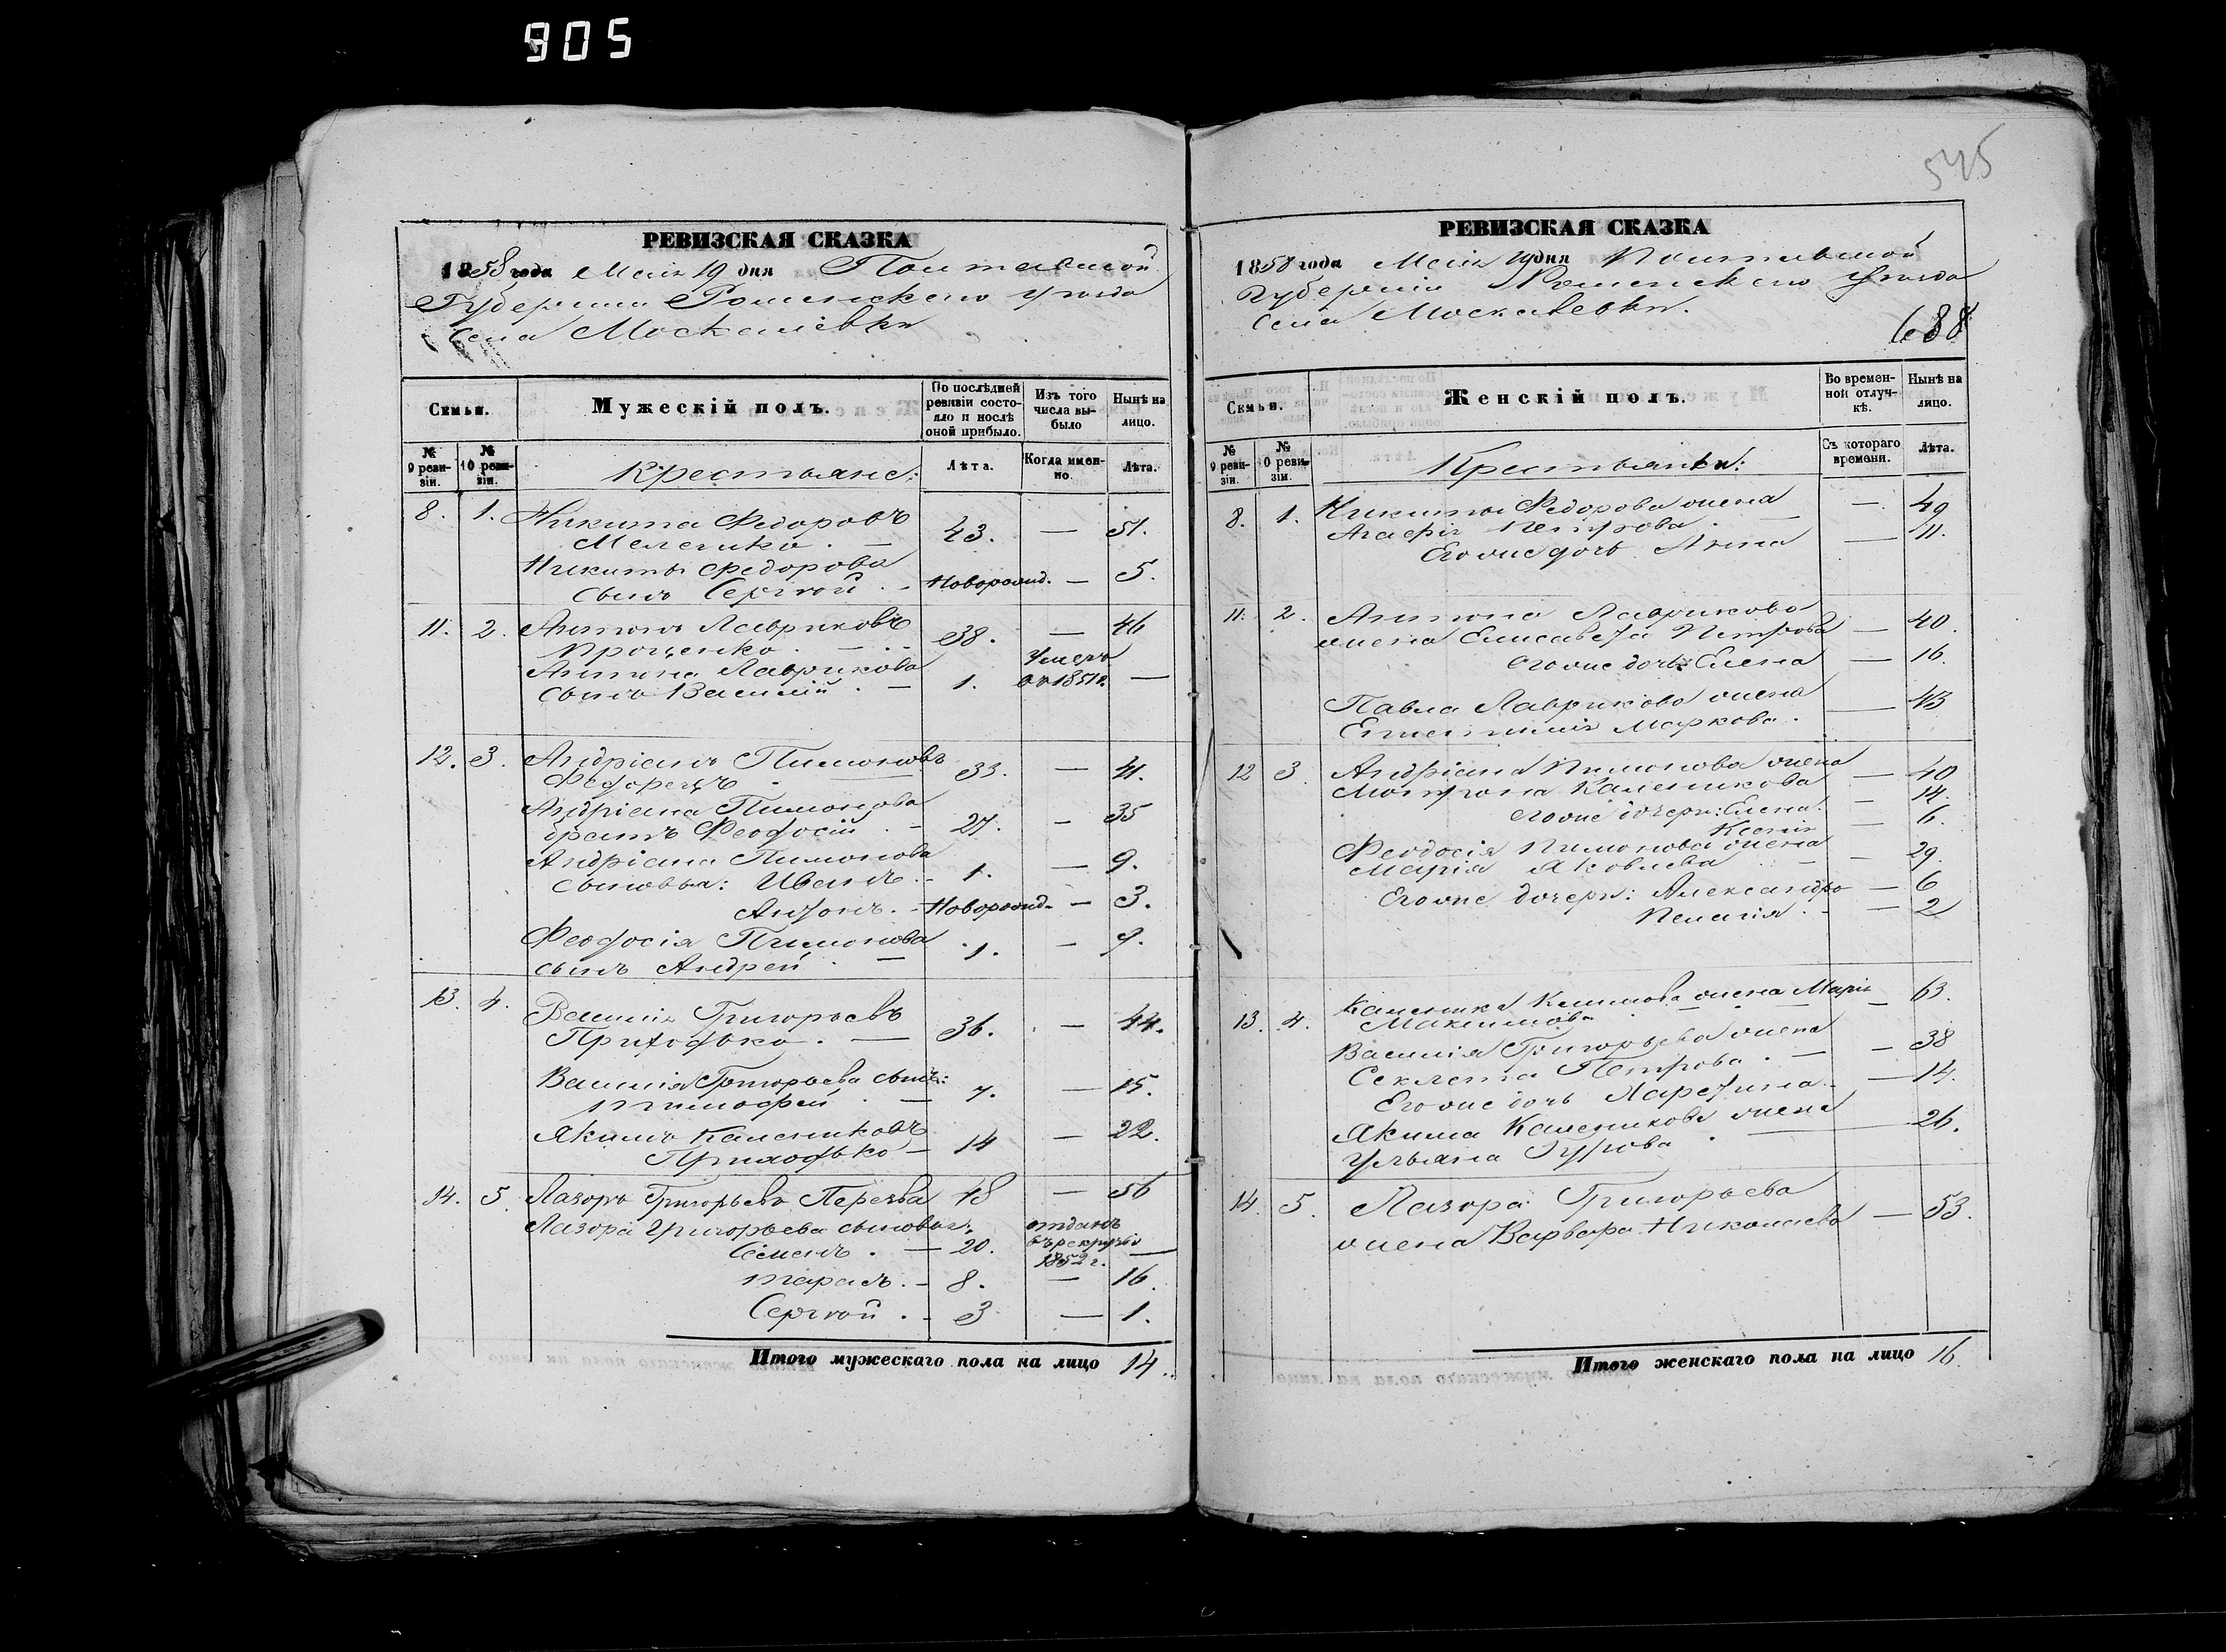 905
РЕВИЗСКАЯ СКАЗКА
1858 года Маія 19 дня Полтавской
Губерніи Роменскаго уѣзда
Села Москалевки
Семьи. Мужескій полъ. По послѣдней ревизіи состояло и послѣ оной прибыло. Изъ того числа выбыло Нынѣ на лицо.
№ 9 ревизіи. № 10 ревизіи. Крестьяне: Лѣта. Когда именно. Лѣта.
8. 1. Никита Федоровъ
Мелешко. — 43. — 51.
Никиты Федорова
сынъ Сергей. - Новорожд. — 5.
11. 2. Антонъ Лавриковъ
Проценко. — 38. — 46
Антона Лаврикова
сынъ Василій. — 1. Умеръ въ 1851 г. —
12. 3. Андріанъ Пимоновъ
Федорецъ — 33. — 41.
Андріана Пимонова
братъ Феодосій. - 27. — 35
Андріана Пимонова
сыновья: Иванъ. - 1. — 9.
Антонъ. - Новорожд. — 3.
Феодосія Пимонова
сынъ Андрей. — 1. — 9.
13. 4. Василій Григорьевъ
Приходько. — 36. — 44.
Василія Григорьева сынъ:
Тимофей. — 7. — 15.
Якимъ Калениковъ
Приходько — 14 — 22.
14. 5. Лазорь Григорьевъ Перезва 48 — 56
Лазора Григорьева сыновья:
Семенъ. — 20. отданъ въ рекруты 1852 г. —
Тарасъ. - 8. — 16.
Сергей. - 3 — 1.
Итого мужескаго пола на лицо 14.
545
РЕВИЗСКАЯ СКАЗКА
1858 года Маія 19 дня Полтавской
Губерніи Роменскаго уѣзда
Села Москалевки.
688
Семьи. Женскій полъ. Во временной отлучкѣ. Нынѣ на лицо.
№ 9 ревизіи. № 10 ревизіи. Крестьянки: Съ котораго времени. Лѣта.
8. 1. Никиты Федорова жена — 49
Агафія Петрова. —
Его же дочь Анна — 11.
11. 2. Антона Лаврикова
жена Елисавета Петрова — 40.
его же дочь: Елена — 16.
Павла Лаврикова жена — 43
Маркова.
12 3. Андріана Пимонова жена
Мотрона Каленикова — 40
его же дочери: Елена. — 14.
Ксенія — 6.
Феодосія Пимонова жена
Марія Яковлева — 29.
Его же дочери: Александра — 6
Пелагія. - — 2
13. 4. Каленика Климова жена Марія
Максимова — 63.
Василія Григорьева жена
Секлета Петрова. — 38
Его же дочь Харетина — 14.
Якима Каленикова жена
Ульяна Гурова. — 26.
14. 5. Лазора Григорьева
жена Варвара Николаева — 53.
Итого женскаго пола на лицо 16.